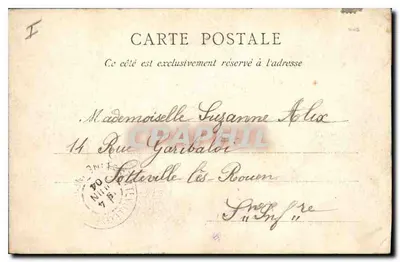 I
CARTE POSTALE
Ce côté est exclusivement réservé à l'adresse
Mademoiselle Suzanne Alix
14 Rue Garibaldi
Sotteville lès Rouen
Sne Infre
CPAPHIL
JUIN
04